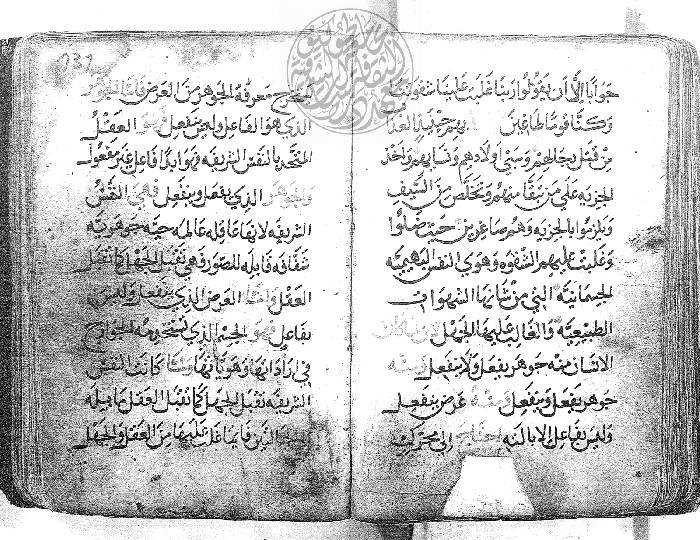 جوابا الا ان يقولوا ربنا غلبت علينا شقوتنا
وكنا قوما طاغين حينئذ العذاب
من قتل رجالهم وسبي اولادهم ونسائهم واخذ
الجزيه على من تبقا منهم وتخلص من السيف
ويلزموا بالجزيه وهم صاغرين حيث ضلوا
وغلبت عليهم الشقوه وهوي النفس البهيميه
الجسمانيه التي من شانها الشهوات
الطبيعيه والغالب عليها الجهل
الانسان منه جوهر يفعل ولا ينفعل ومنه
جوهر يفعل وينفعل ومنه عرض ينفعل
وليس بفاعل الا بالنيه الى محركيه
معرفة الجوهر من العرض
الذي هو الفاعل وليس ينفعل العقل
المتحد بالنفس الشريفه فهو ابدا فاعل غير مفعول
والجوهر الذي يفعل وينفعل فهي النفس
الشريفه لانها عاقله عالمه حيه جوهريه
شفافه قابله للصور فهي تقبل الجهل كما تقبل
العقل واما العرض الذي ينفعل وليس
بفاعل فهو الجسم الذي تستخدمه الجوارح
في اراداتها وهويانها كانت النفس
الشريفه تقبل الجهل كما تقبل العقل مايله
فايما غلب عليها من العقل والجهل